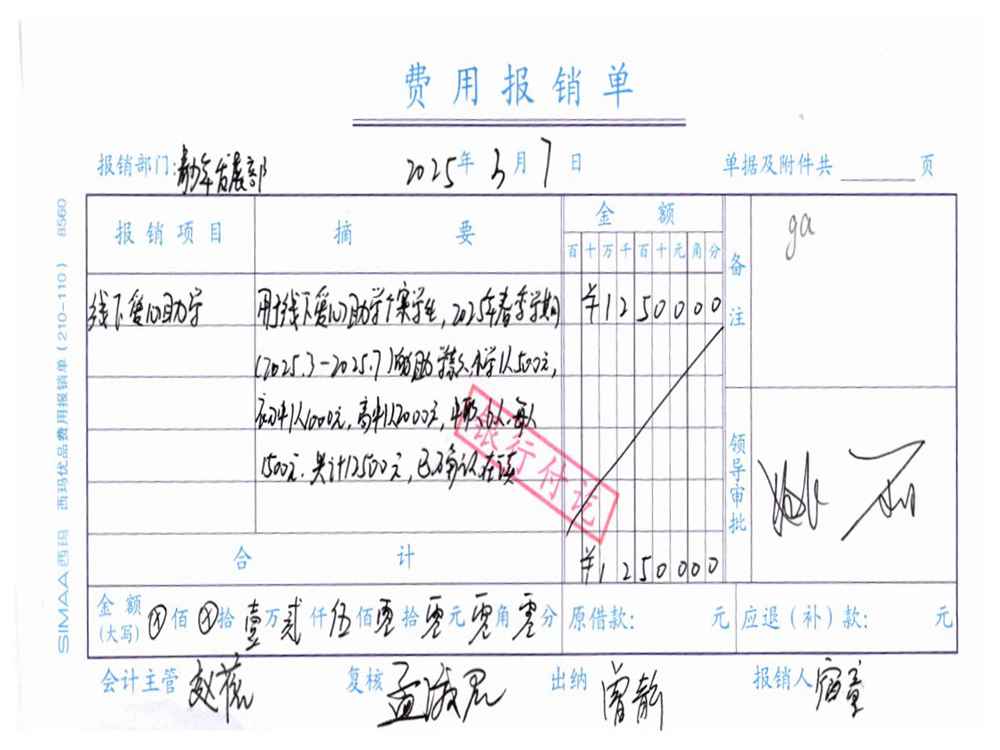 费用报销单
报销部门: 青少年发展部 2025年 3月 7日 单据及附件共 页
报销项目 摘要 金额 备注
百十万千百十元角分
ga
线下爱心助学 用于线下爱心助学个案学生,2025年春季学期 ¥1250000
(2025.3-2025.7)的助学款,小学1人500元,
初中1人1000元,高中1人2000元,6人,每人
1500元.共计12500元,已确认在读
银行付讫
领导审批
合计 ¥1250000
金额(大写) ⊗佰⊗拾壹万贰仟伍佰零拾零元零角零分 原借款: 元 应退(补)款: 元
会计主管 赵 复核 孟 出纳 曾静 报销人 宿童
SIMAA西玛 西玛优品费用报销单(210-110) 8560